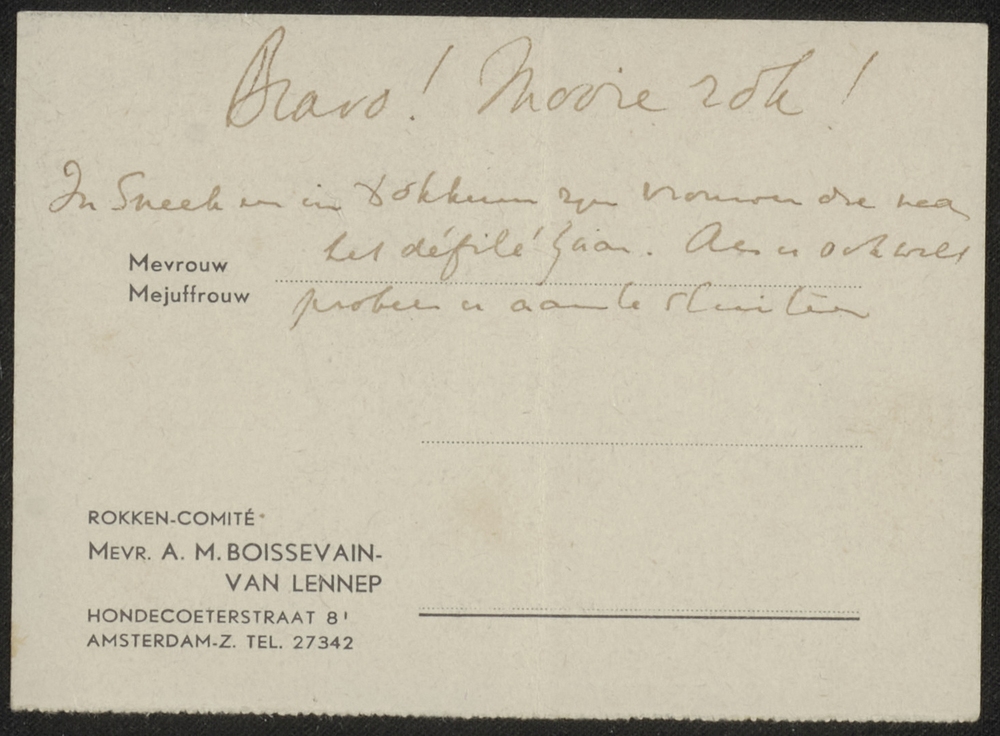 Bravo! Mooie rok!
In Sneek en in Dokkum zijn vrouwen die naar
het défilé gaan. Als u ook wilt
Mevrouw
Mejuffrouw
probeer u aan te sluiten
ROKKEN-COMITÉ
MEVR. A. M. BOISSEVAIN-
VAN LENNEP
HONDECOETERSTRAAT 8'
AMSTERDAM-Z. TEL. 27342